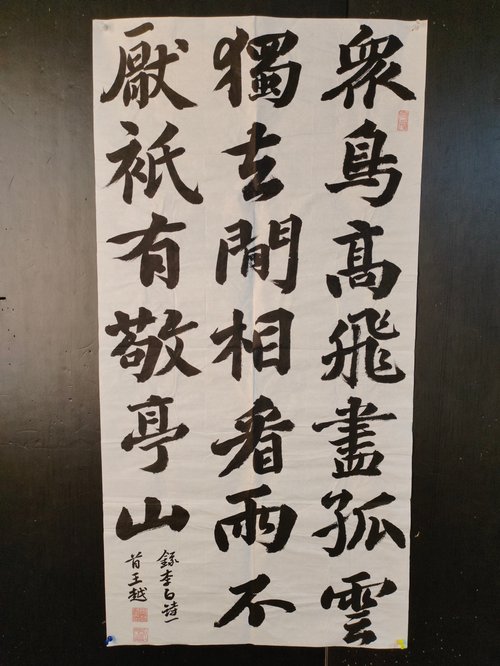 衆鳥髙飛盡孤雲
獨去閒相看兩不
厭衹有敬亭山
錄李白詩一
首王越